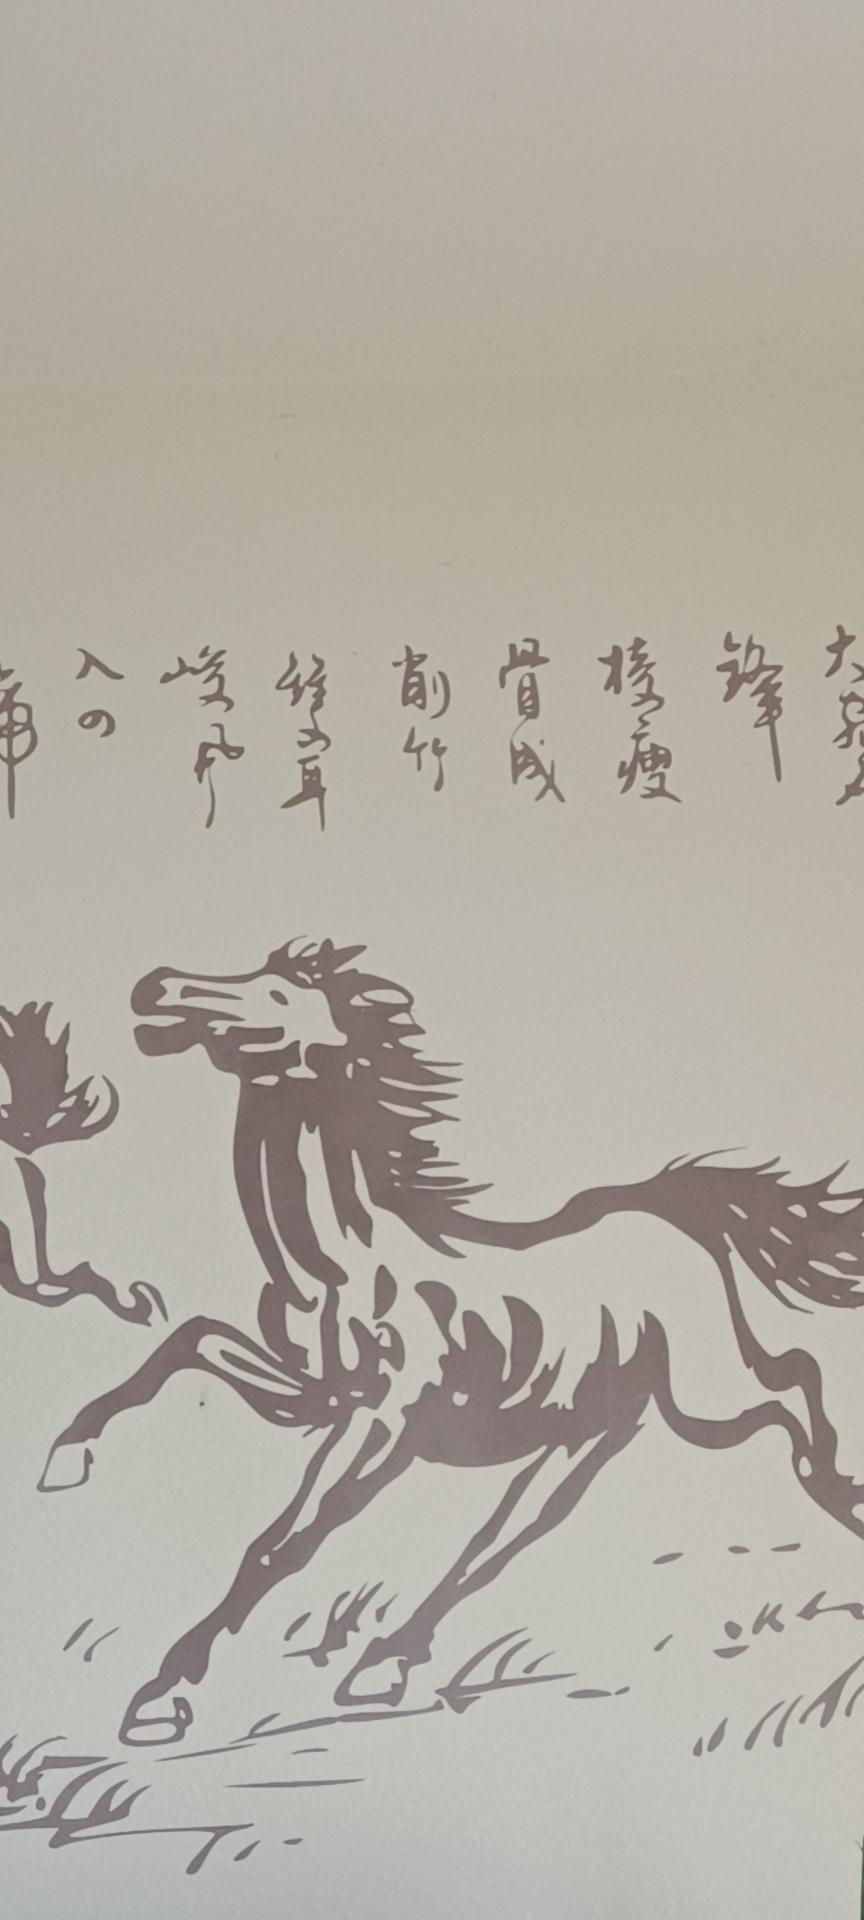 大宛名
鋒
棱瘦
骨成
削竹
雙耳
峻風
入四